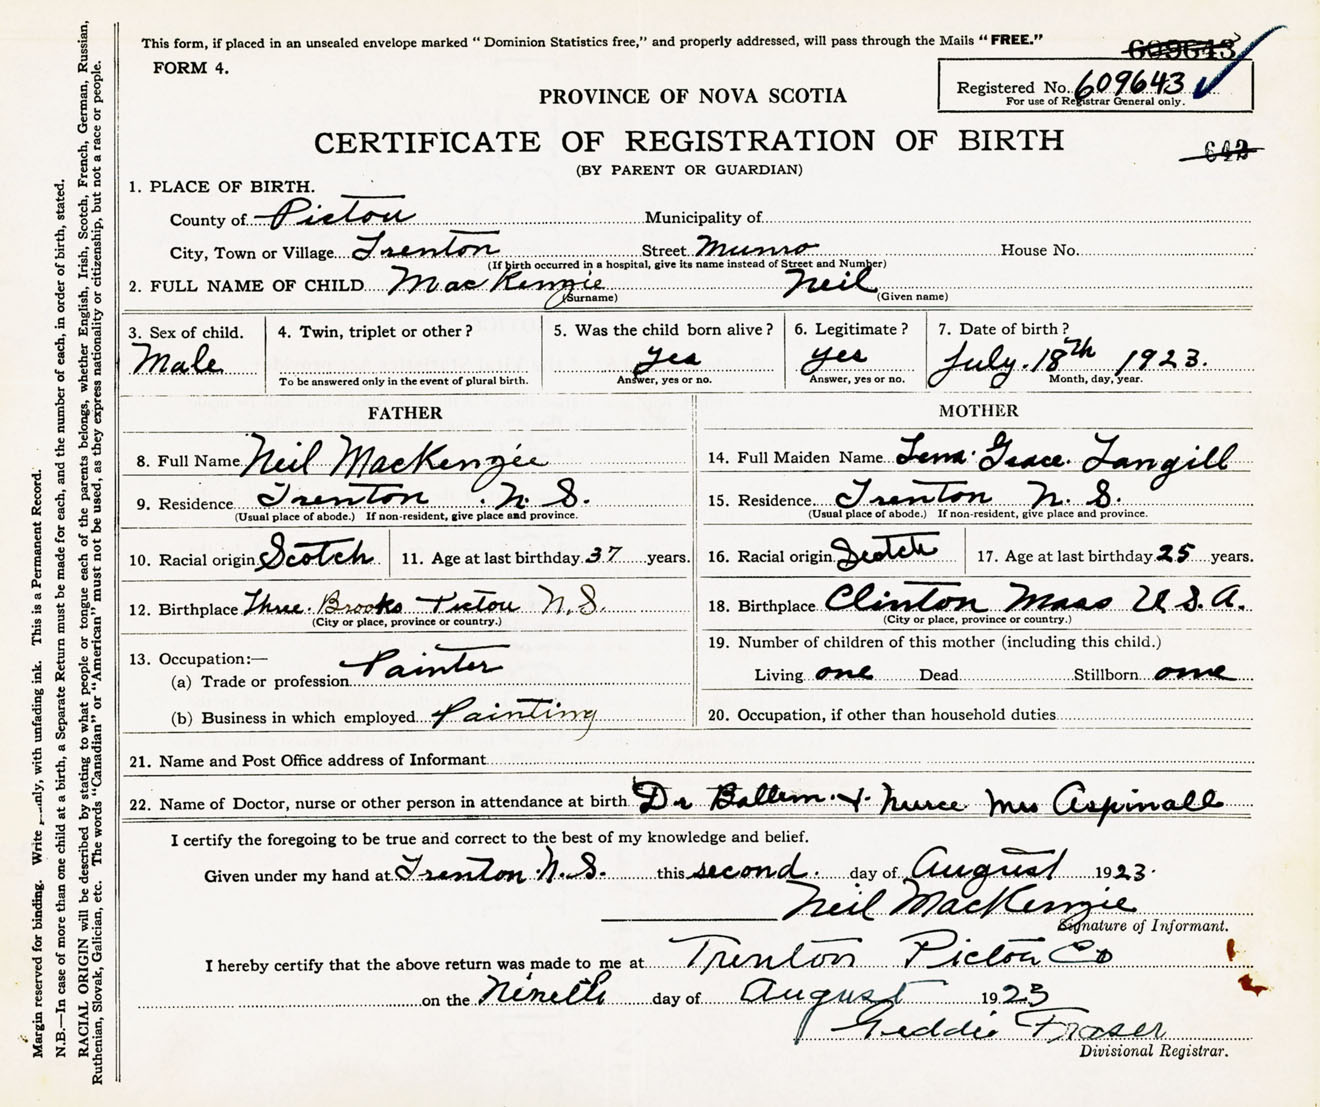 This form, if placed in an unsealed envelope marked "Dominion Statistics free," and properly addressed, will pass through the Mails "FREE."
609643
FORM 4.
Registered No. 609643
For use of Registrar General only.
PROVINCE OF NOVA SCOTIA
CERTIFICATE OF REGISTRATION OF BIRTH
(BY PARENT OR GUARDIAN)
1. PLACE OF BIRTH.
County of Pictou Municipality of
City, Town or Village Trenton Street Munro House No.
(If birth occurred in a hospital, give its name instead of Street and Number)
2. FULL NAME OF CHILD MacKenzie Neil
(Surname) (Given name)
3. Sex of child. 4. Twin, triplet or other? 5. Was the child born alive? 6. Legitimate? 7. Date of birth?
Male yes yes July 18th 1923.
To be answered only in the event of plural birth. Answer, yes or no. Answer, yes or no. Month, day, year.
FATHER MOTHER
8. Full Name Neil MacKenzie 14. Full Maiden Name Lena Grace Langill
9. Residence Trenton N. S. 15. Residence Trenton N. S.
(Usual place of abode.) If non-resident, give place and province. (Usual place of abode.) If non-resident, give place and province.
10. Racial origin Scotch 11. Age at last birthday 37 years. 16. Racial origin Scotch 17. Age at last birthday 25 years.
12. Birthplace Three Brooks Pictou N.S. 18. Birthplace Clinton Mass U.S.A.
(City or place, province or country.) (City or place, province or country.)
19. Number of children of this mother (including this child.)
13. Occupation:—
(a) Trade or profession Painter Living one Dead Stillborn one
(b) Business in which employed Painting 20. Occupation, if other than household duties
21. Name and Post Office address of Informant
22. Name of Doctor, nurse or other person in attendance at birth Dr Ballem & nurce Mrs Aspinall
I certify the foregoing to be true and correct to the best of my knowledge and belief.
Given under my hand at Trenton N.S. this second. day of August 1923.
Neil MacKenzie
Signature of Informant.
I hereby certify that the above return was made to me at Trenton Pictou Co
on the Nineth day of August 1923
Geddie Fraser
Divisional Registrar.
Margin reserved for binding. Write with unfading ink. This is a Permanent Record.
N.B.—In case of more than one child at a birth, a Separate Return must be made for each, and the number of each, in order of birth, stated.
RACIAL ORIGIN will be described by stating to what people or tongue each of the parents belongs, whether English, Irish, Scotch, French, German, Russian,
Ruthenian, Slovak, Galician, etc. The words "Canadian" or "American" must not be used, as they express nationality or citizenship, but not a race or people.